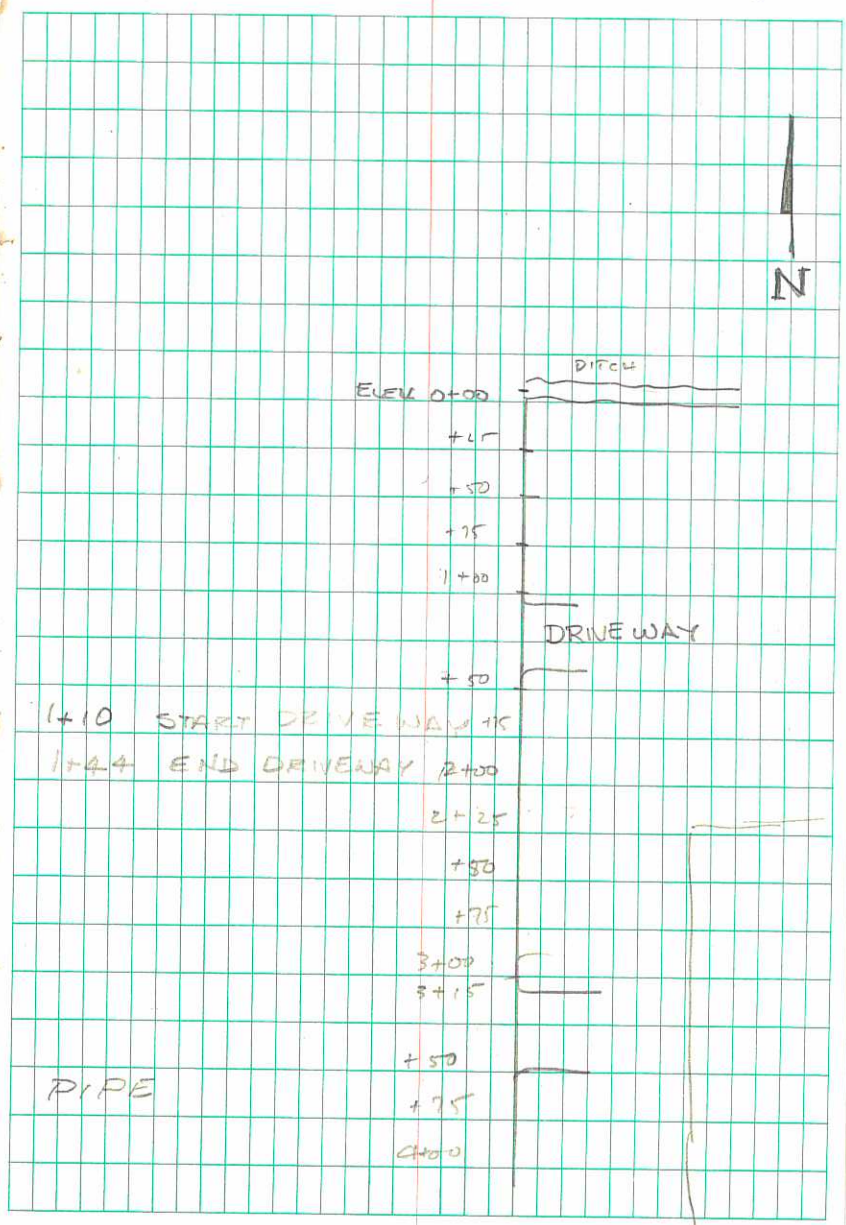 N
DITCH
ELEV. 0+00
+25
+50
+75
1+00
DRIVEWAY
+50
1+10 START DRIVEWAY +75
1+44 END DRIVEWAY 2+00
2+25
+50
+75
3+00
3+15
+50
PIPE
+75
4+00